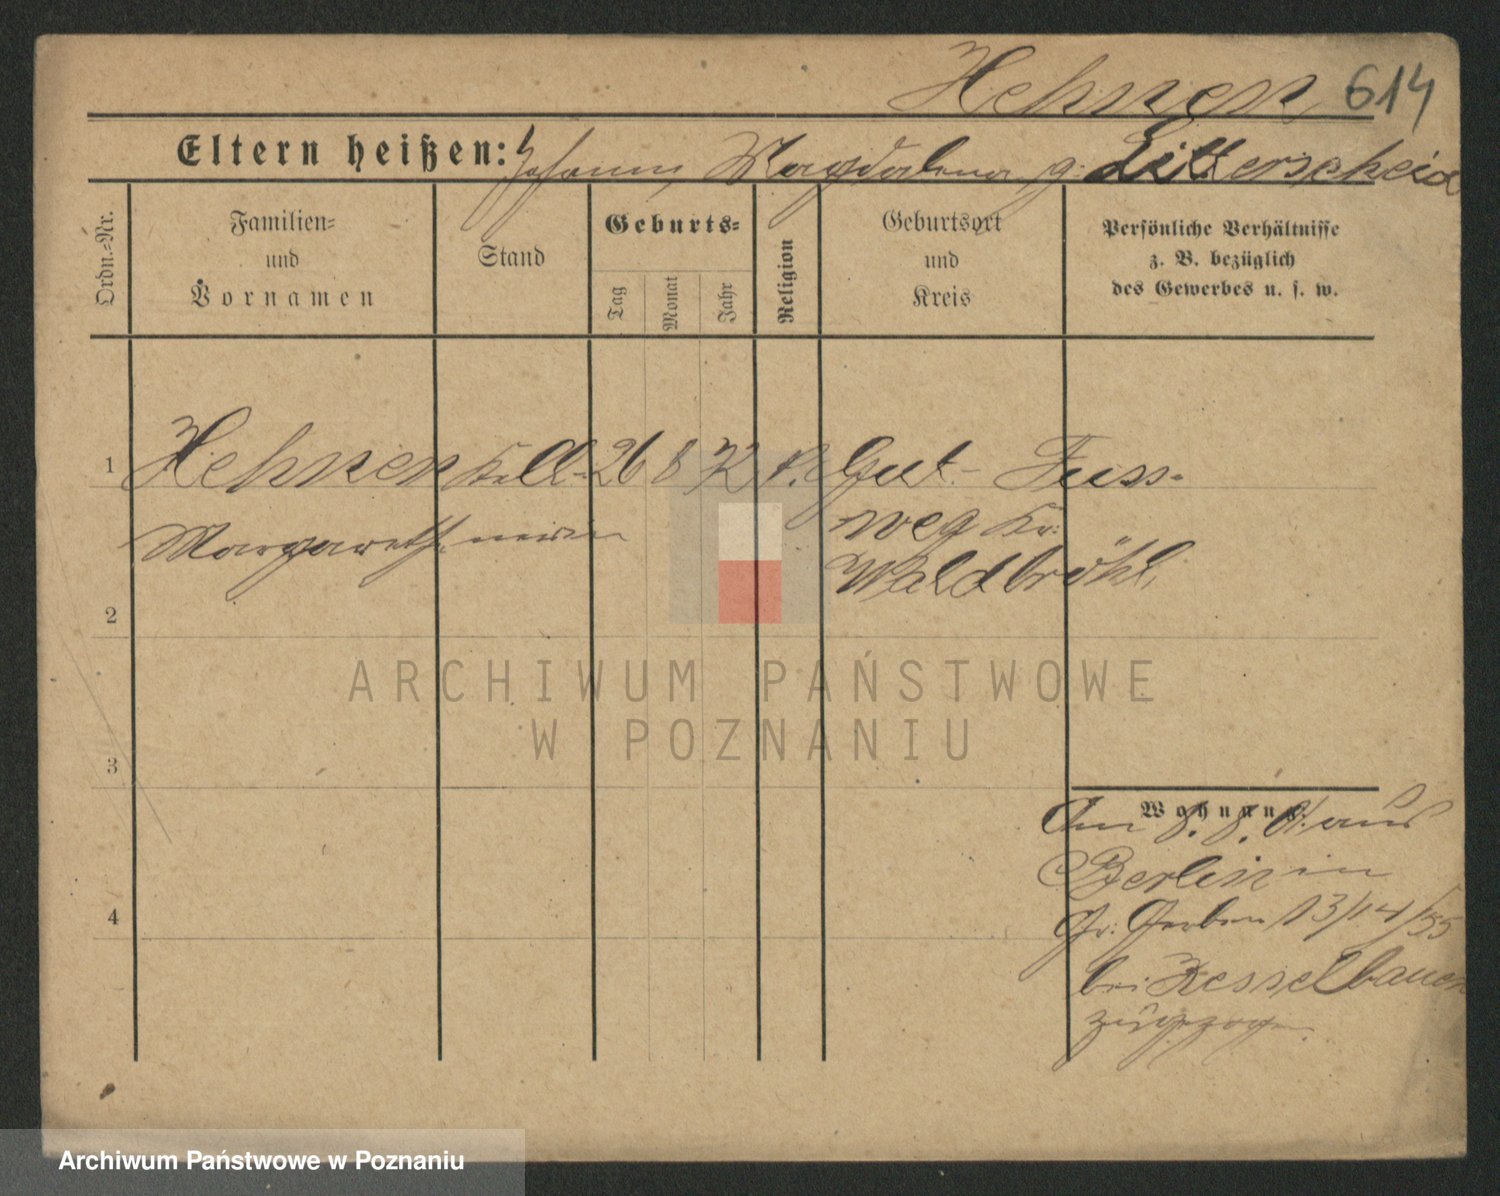 Hehnen, 614
Eltern heißen: Johann, Magdalena g. Litterscheid
Ordn.-Nr.
Familien-
und
Vornamen
Stand
Geburts-
Tag
Monat
Jahr
Religion
Geburtsort
und
Kreis
Persönliche Verhältnisse
z. B. bezüglich
des Gewerbes u. s. w.
1 Hehnen Kell- 26 8 72 k. Gut- Fuss-
Margareth nerin weg Kr.
Waldbröhl.
2
ARCHIWUM PAŃSTWOWE
W POZNANIU
3
Wohnung
Am 8. 8. 01. aus
Berlin in
Gr. Gerber 13/14/55
bei Kesselbauer
zugezogen.
4
Archiwum Państwowe w Poznaniu